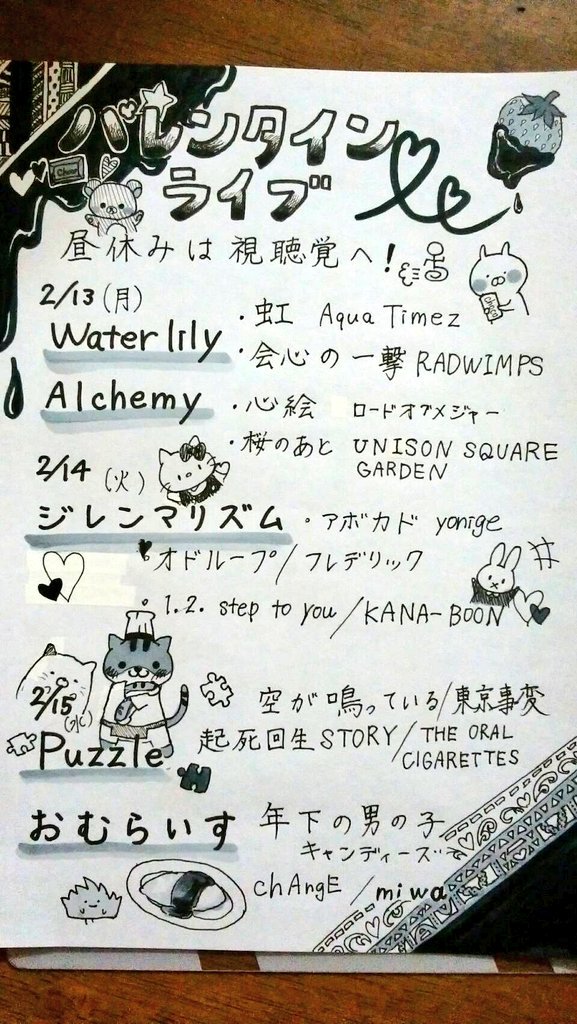 バレンタイン
ライブ
昼休みは視聴覚へ!
2/13(月)
Water lily
・虹 Aqua Timez
・会心の一撃 RADWIMPS
Alchemy
・心絵 ロードオブメジャー
・桜のあと UNISON SQUARE
GARDEN
2/14 (火)
ジレンマリズム ・アボカド yonige
・オドループ/フレデリック
・1.2. step to you/KANA-BOON
2/15(水)
Puzzle
空が鳴っている/東京事変
起死回生STORY/THE ORAL
CIGARETTES
おむらいす
年下の男の子
キャンディーズ
chAngE/miwa